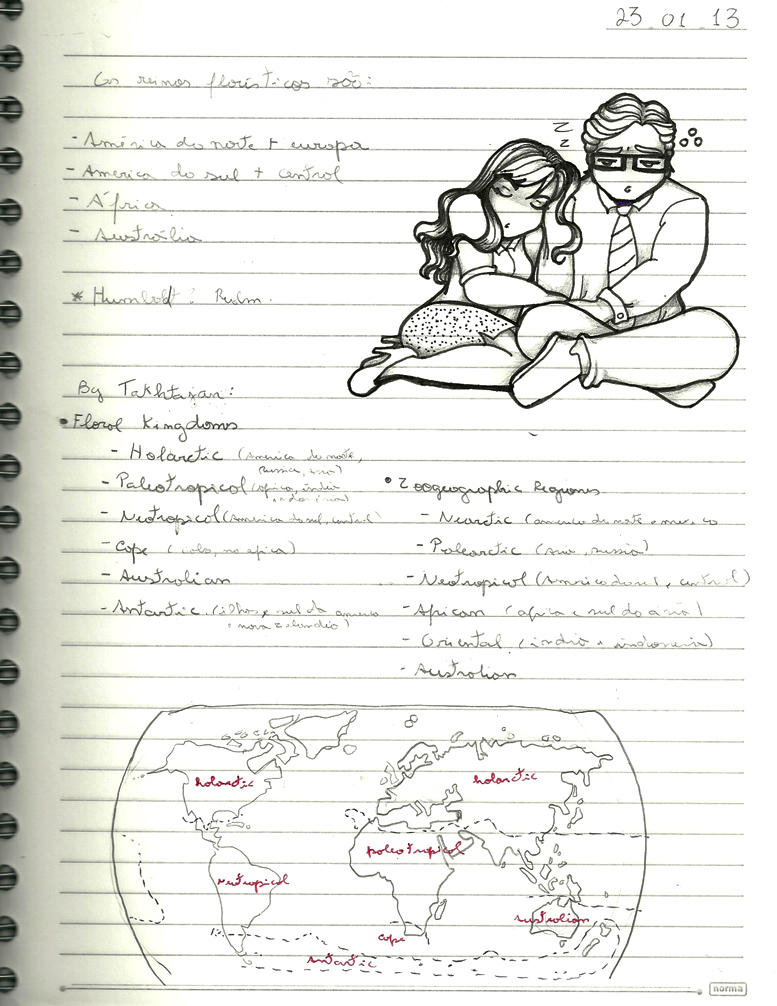 23 01 13
Os reinos florísticos são:
- América do norte + europa
- America do sul + central
- África
- Austrália
* Humboldt: Realm.
By Takhtajan:
• Floral Kingdoms
- Holarctic (America do norte,
russia, asia)
- Paleotropical (africa, índia
indonésia)
- Neotropical (America do sul, central)
- Cape (cabo, na africa)
- Australian
- Antartic (ilhas, sul da america
e nova zelandia)
• Zoogeographic Regiones
- Nearctic (america do norte e mexico
- Palearctic (asia, russia)
- Neotropical (América do sul, central)
- African (africa e sul da asia)
- Oriental (india e indonesia)
- Australian
z
z
holarctic
holarctic
paleotropical
neotropical
australian
cape
antartic
norma